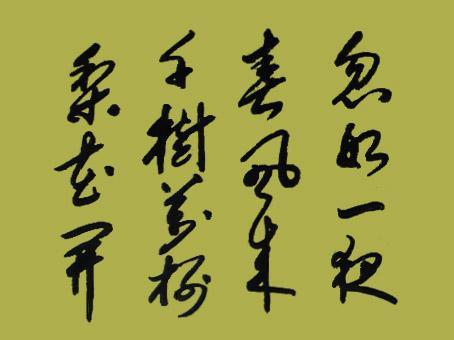 忽如一夜
春风来
千樹万树
梨花开